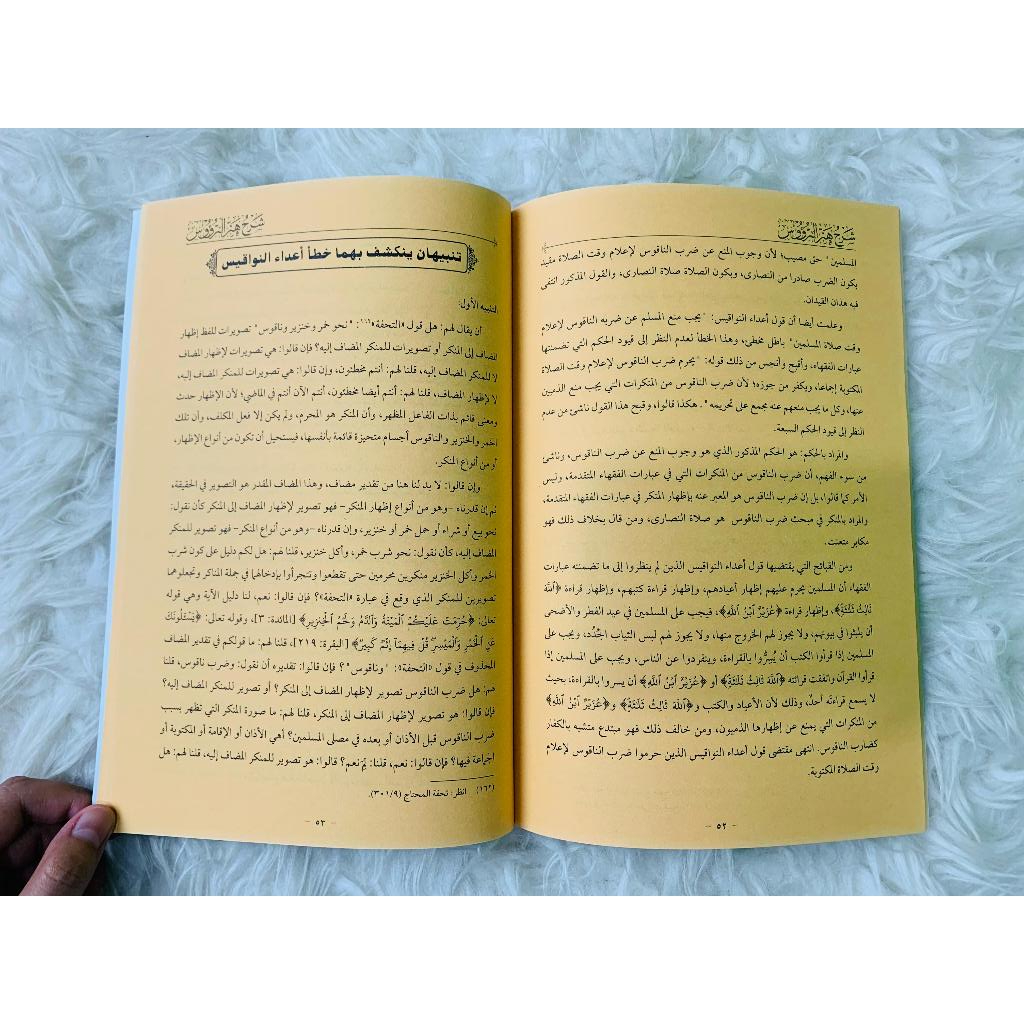 شرح هز الرؤوس
المسلمين" حق مصيب؛ لأن وجوب المنع عن ضرب الناقوس لإعلام وقت الصلاة مقيد
يكون الضرب صادرا من النصارى، ويكون الصلاة صلاة النصارى، والقول المذكور انتفى
فيه هذان القيدان.
وعلمت أيضا أن قول أعداء النواقيس: "يجب منع المسلم عن ضربه الناقوس لإعلام
وقت صلاة المسلمين" باطل مخطئ، وهذا الخطأ لعدم النظر إلى قيود الحكم التي تضمنتها
عبارات الفقهاء، وأقبح وأنجس من ذلك قوله: "يحرم ضرب الناقوس لإعلام وقت الصلاة
المكتوبة إجماعا، ويكفر من جوزه؛ لأن ضرب الناقوس من المنكرات التي يجب منع الذميين
عنها، وكل ما يجب منعهم عنه مجمع على تحريمه". هكذا قالوا، وقبح هذا القول ناشئ من عدم
النظر إلى قيود الحكم السبعة.
والمراد بالحكم: هو الحكم المذكور الذي هو وجوب المنع عن ضرب الناقوس، وناشئ
من سوء الفهم، أن ضرب الناقوس من المنكرات التي في عبارات الفقهاء المتقدمة، وليس
الأمر كما قالوا، بل إن ضرب الناقوس هو المعبر عنه بإظهار المنكر في عبارات الفقهاء المتقدمة،
والمراد بالمنكر في مبحث ضرب الناقوس هو صلاة النصارى، ومن قال بخلاف ذلك فهو
مكابر متعنت.
ومن القبائح التي يقتضيها قول أعداء النواقيس الذين لم ينظروا إلى ما تضمنته عبارات
الفقهاء: أن المسلمين يحرم عليهم إظهار أعيادهم، وإظهار قراءة كتبهم، وإظهار قراءة ﴿ٱللَّهَ
ثَالِثُ ثَلَٰثَةٍ﴾، وإظهار قراءة ﴿عُزَيْرٌ ٱبْنُ ٱللَّهِ﴾، فيجب على المسلمين في عيد الفطر والأضحى
أن يلبثوا في بيوتهم، ولا يجوز لهم الخروج منها، ولا يجوز لهم لبس الثياب الجُدُد، ويجب على
المسلمين إذا قرأوا الكتب أن يُسِرُّوا بالقراءة، وينفردوا عن الناس، ويجب على المسلمين إذا
قرأوا القرآن واتفقت قراءته ﴿ٱللَّهَ ثَالِثُ ثَلَٰثَةٍ﴾ أو ﴿عُزَيْرٌ ٱبْنُ ٱللَّهِ﴾ أن يسروا بالقراءة، بحيث
لا يسمع قراءته أحد، وذلك لأن الأعياد والكتب و﴿ٱللَّهَ ثَالِثُ ثَلَٰثَةٍ﴾ و﴿عُزَيْرٌ ٱبْنُ ٱللَّهِ﴾
من المنكرات التي يمنع عن إظهارها الذميون، ومن خالف ذلك فهو مبتدع متشبه بالكفار
كضارب الناقوس. انتهى مقتضى قول أعداء النواقيس الذين حرموا ضرب الناقوس لإعلام
وقت الصلاة المكتوبة.
- ٥٢ -
شرح هز الرؤوس
تنبيهان ينكشف بهما خطأ أعداء النواقيس
التنبيه الأول:
أن يقال لهم: هل قول «التحفة»: "نحو خمر وخنزير وناقوس" تصويرات للفظ إظهار
المضاف إلى المنكر أو تصويرات للمنكر المضاف إليه؟ فإن قالوا: هي تصويرات لإظهار المضاف
لا للمنكر المضاف إليه، قلنا لهم: أنتم مخطئون، وإن قالوا: هي تصويرات للمنكر المضاف إليه،
لا لإظهار المضاف، قلنا لهم: أنتم أيضا مخطئون، أنتم الآن أنتم في الماضي؛ لأن الإظهار حدث
ومعنى قائم بذات الفاعل المظهر، وأن المنكر هو المحرم، ولم يكن إلا فعل المكلف، وأن تلك
الخمر والخنزير والناقوس أجسام متحيزة قائمة بأنفسها، فيستحيل أن تكون من أنواع الإظهار،
أو من أنواع المنكر.
وإن قالوا: لا بد لنا هنا من تقدير مضاف، وهذا المضاف المقدر هو التصوير في الحقيقة،
ثم إن قدرناه -وهو من أنواع إظهار المنكر- فهو تصوير لإظهار المضاف إلى المنكر كأن نقول:
نحو بيع أو شراء أو حمل خمر أو خنزير، وإن قدرناه -وهو من أنواع المنكر- فهو تصوير للمنكر
المضاف إليه، كأن نقول: نحو شرب خمر، وأكل خنزير، قلنا لهم: هل لكم دليل على كون شرب
الخمر وأكل الخنزير منكرين محرمين حتى تقطعوا وتتجرأوا بإدخالها في جملة المناكر وتجعلوهما
تصويرين للمنكر الذي وقع في عبارة «التحفة»؟ فإن قالوا: نعم، لنا دليل الآية وهي قوله
تعالى: ﴿حُرِّمَتْ عَلَيْكُمُ ٱلْمَيْتَةُ وَٱلدَّمُ وَلَحْمُ ٱلْخِنزِيرِ﴾ [المائدة: ٣]، وقوله تعالى: ﴿يَسْـَٔلُونَكَ
عَنِ ٱلْخَمْرِ وَٱلْمَيْسِرِ قُلْ فِيهِمَآ إِثْمٌ كَبِيرٌ﴾ [البقرة: ٢١٩]، قلنا لهم: ما قولكم في تقدير المضاف
المحذوف في قول «التحفة»: "وناقوس"؟ فإن قالوا: تقديره أن نقول: وضرب ناقوس، قلنا
لهم: هل ضرب الناقوس تصوير لإظهار المضاف إلى المنكر؟ أو تصوير للمنكر المضاف إليه؟
فإن قالوا: هو تصوير لإظهار المضاف إلى المنكر، قلنا لهم: ما صورة المنكر التي تظهر بسبب
ضرب الناقوس قبل الأذان أو بعده في مصلى المسلمين؟ أهي الأذان أو الإقامة أو المكتوبة أو
الجماعة فيها؟ فإن قالوا: نعم، قلنا: لِمَ نعم؟ قالوا: هو تصوير للمنكر المضاف إليه، قلنا لهم: هل
انظر: تحفة المحتاج (٣٠١/٩).
- ٥٣ -